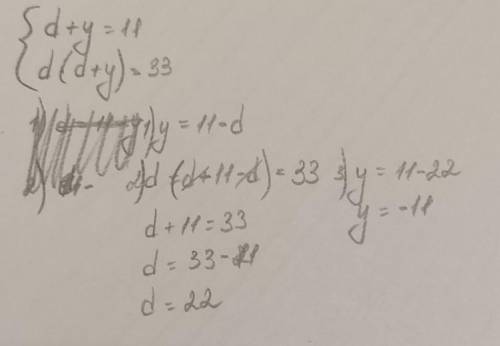 d+y=11
d(d+y)=33
1) y=11-d
2) d+(d+11-d)=33
d+11=33
d=33-11
d=22
3) y=11-22
y=-11